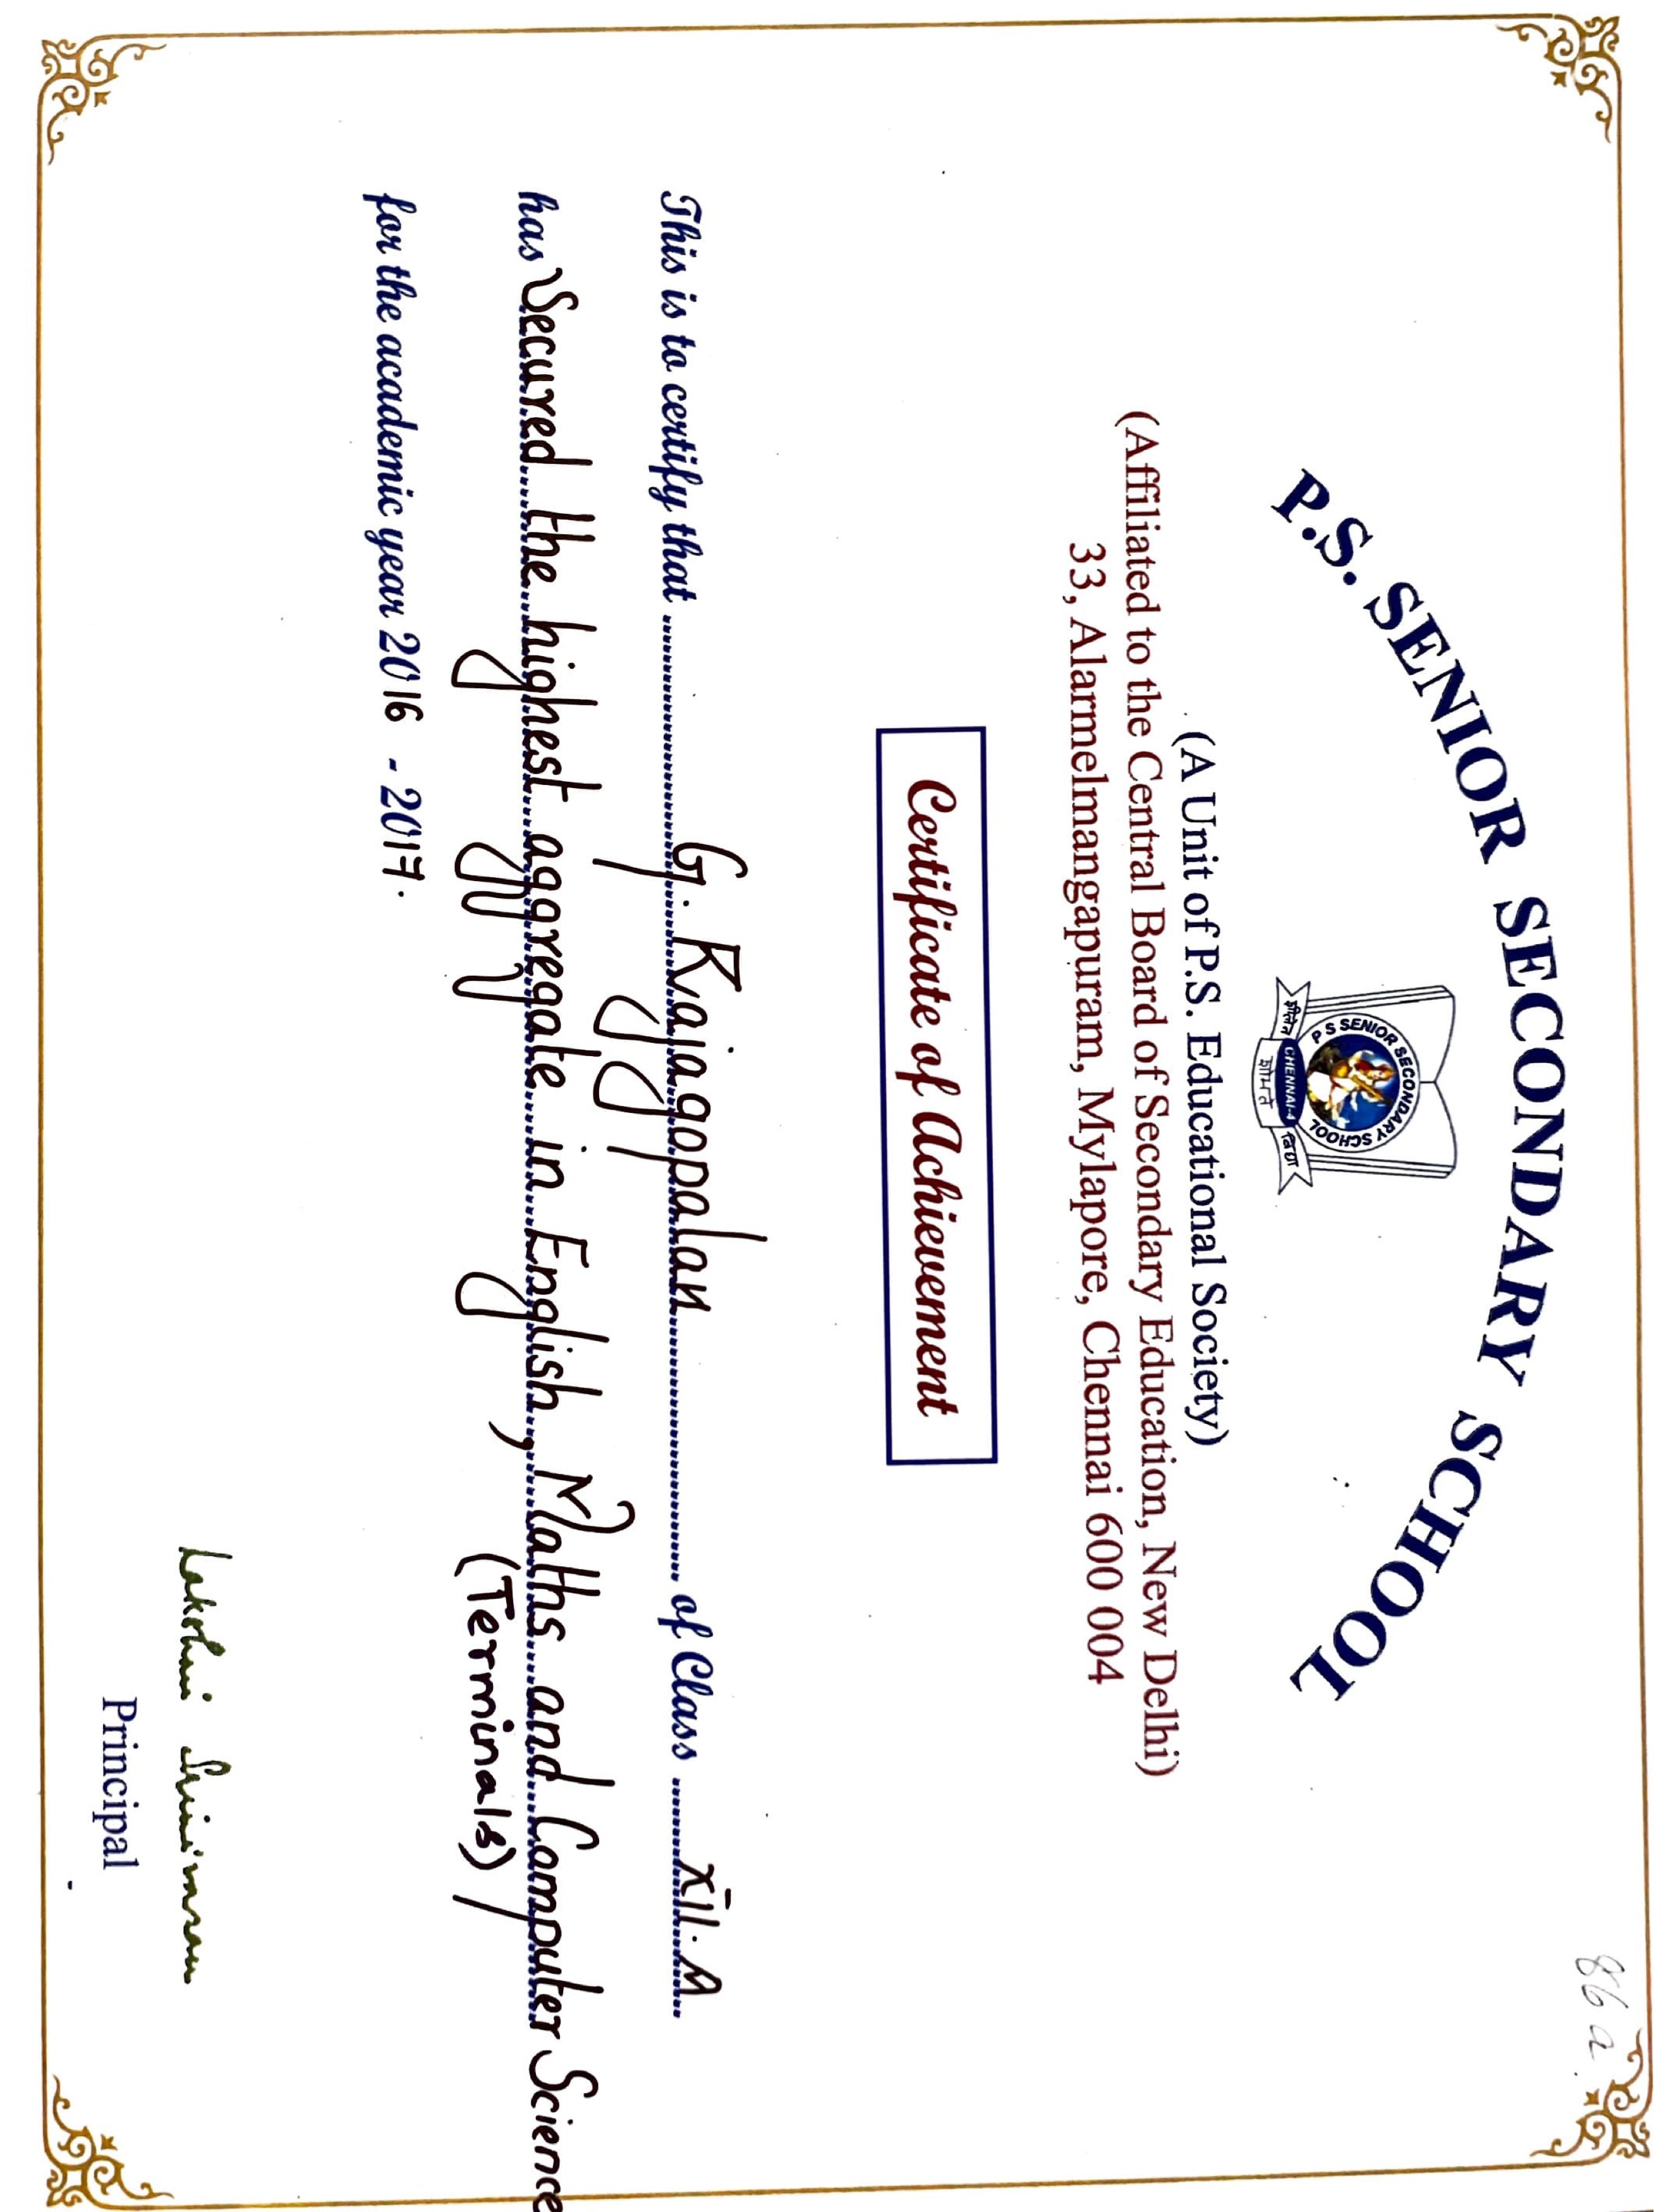 86 a.
P.S. SENIOR SECONDARY SCHOOL
P S SENIOR SECONDARY SCHOOL
शीलेन CHENNAI-4 विद्या
शोभते
(A Unit of P.S. Educational Society)
(Affiliated to the Central Board of Secondary Education, New Delhi)
33, Alarmelmangapuram, Mylapore, Chennai 600 004
Certificate of Achievement
This is to certify that G. Rajagopalan of Class XII. A
has Secured the highest aggregate in English, Maths and Computer Science
(Terminals)
for the academic year 2016 - 2017.
Lakshmi Srinivasan
Principal